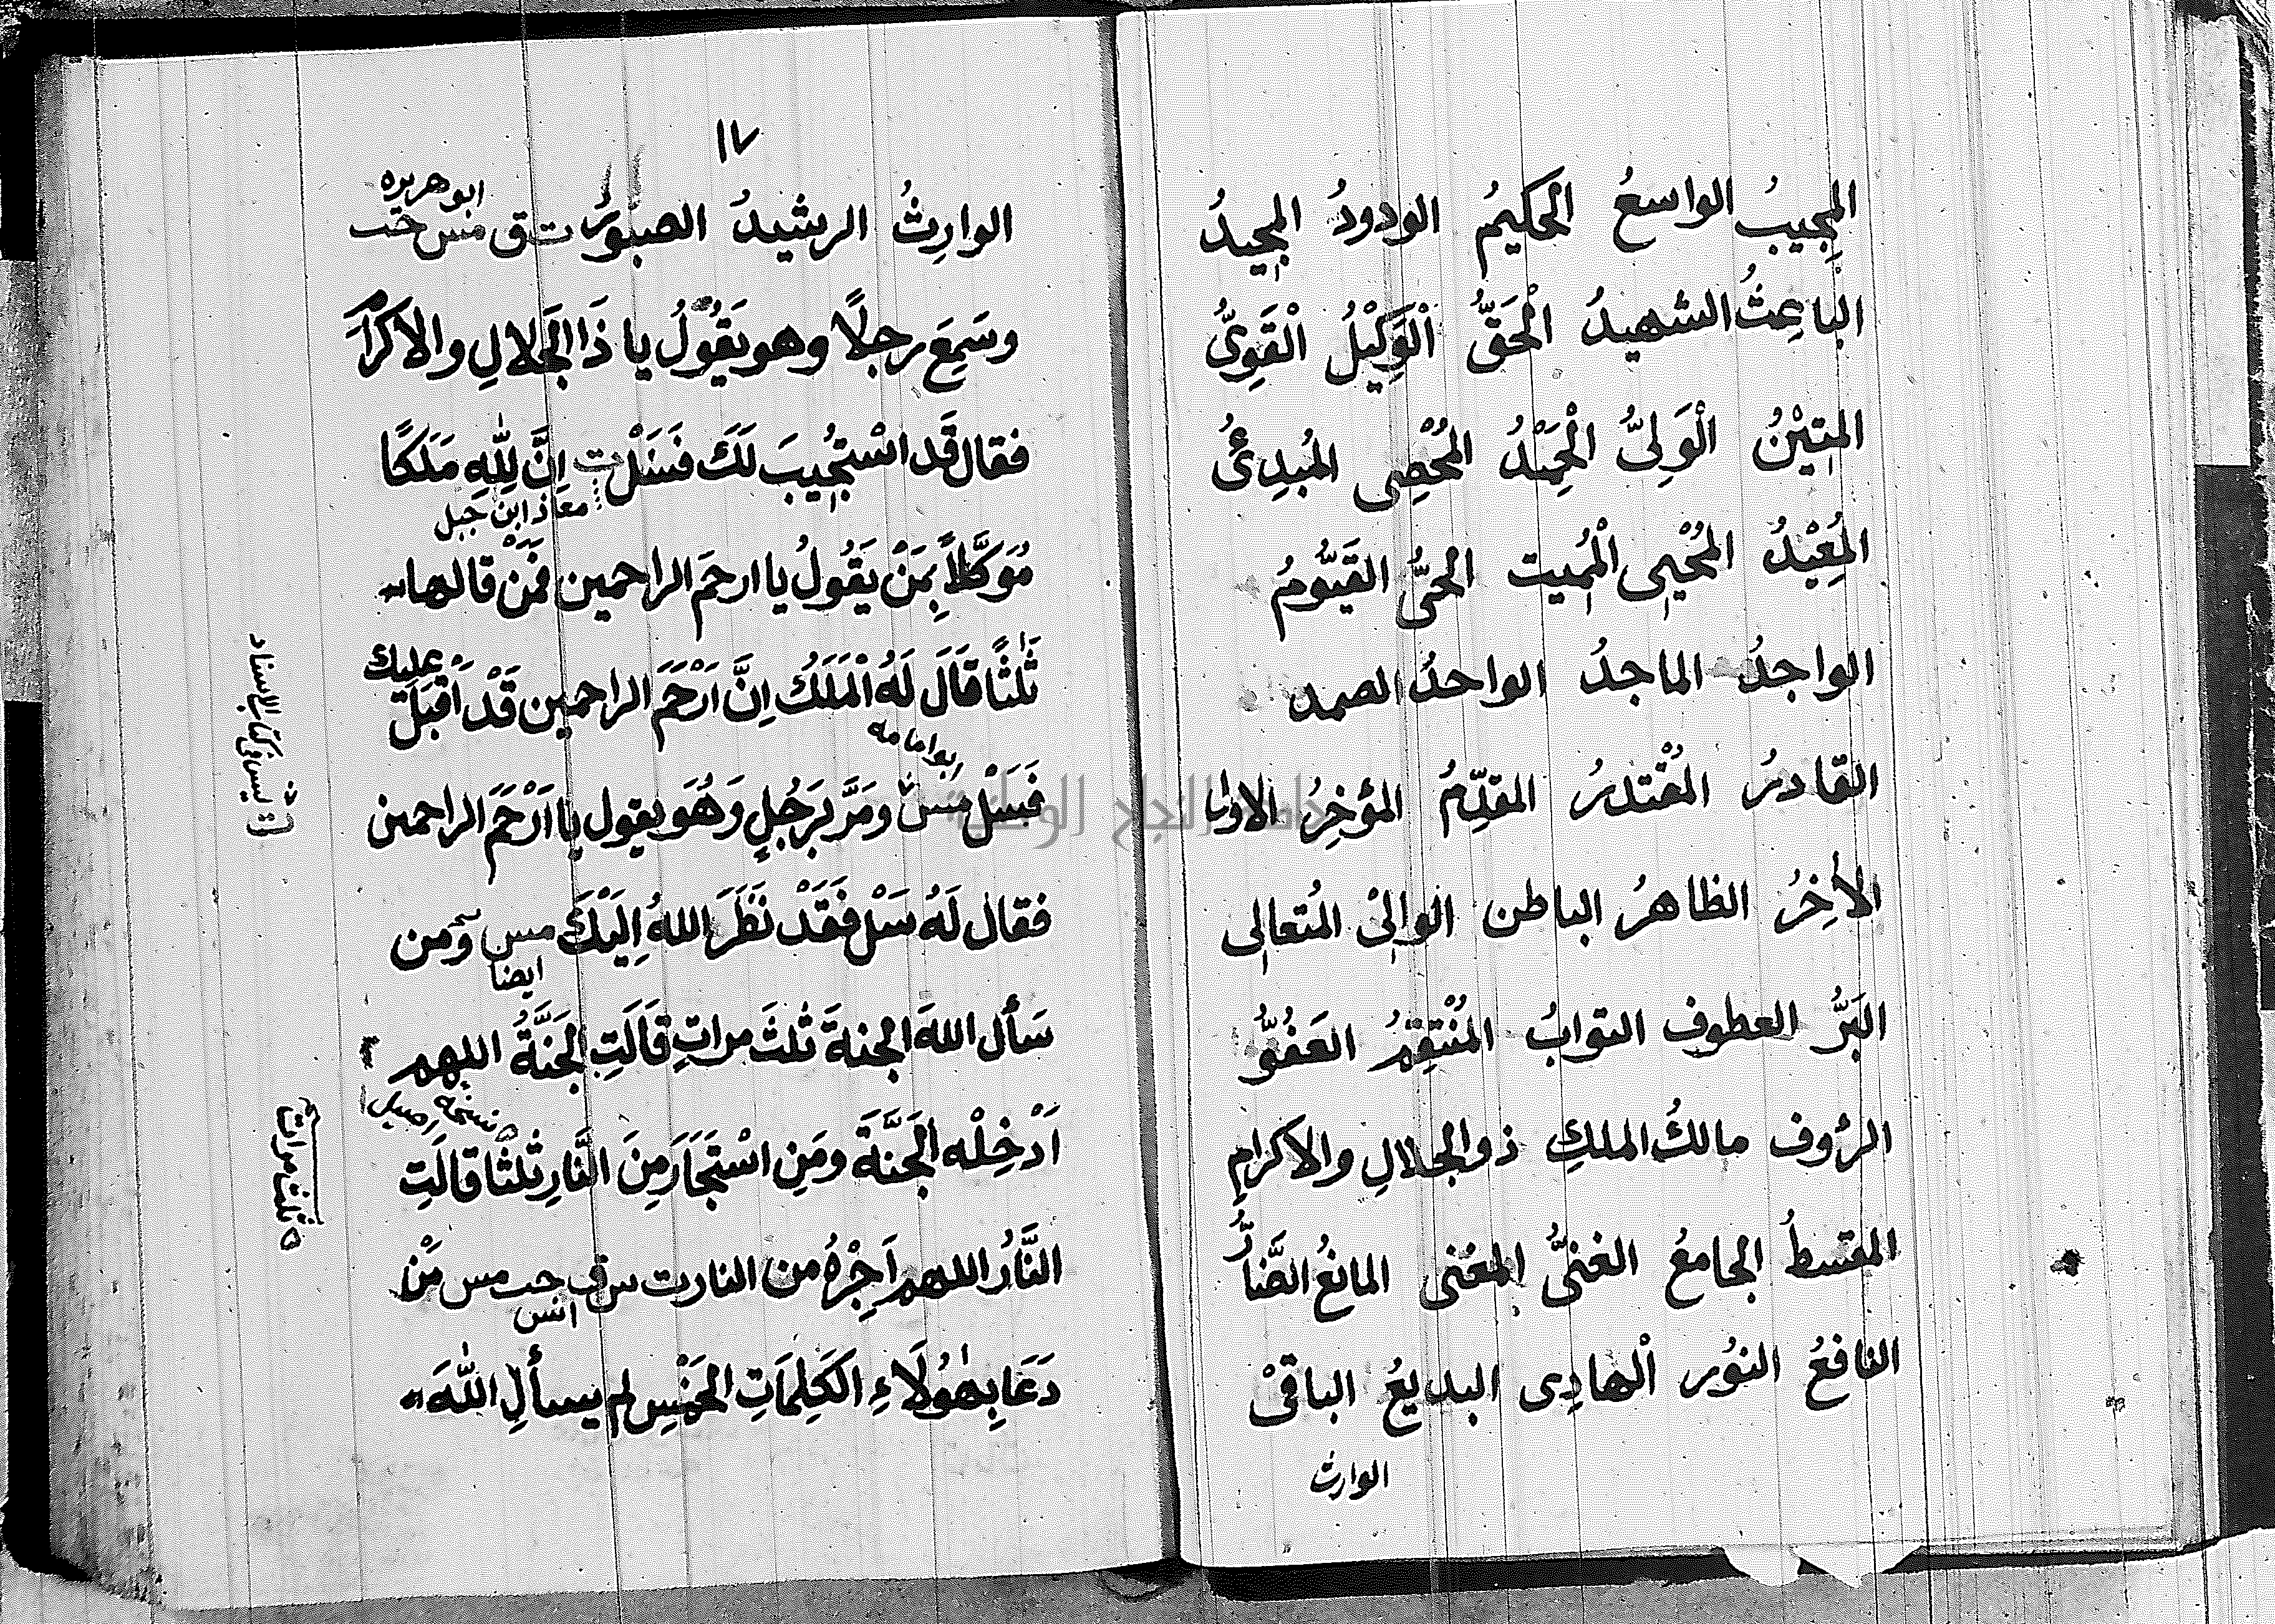 المجيبُ الواسعُ الحكيمُ الودودُ المجيدُ
الباعِثُ الشهيدُ الْحَقُّ الْوَكِيْلُ الْقَوِيُّ
المتِيْنُ الْوَلِيُّ الْحَمِيْدُ الْمُحْصِى المُبدِئُ
المُعِيْدُ المُحْيِى الْمُميت الحىُّ القَيُّومُ
الواجدُ الماجدُ الواحدُ الصمد
القادرُ المُقْتدرُ المقدِّمُ المؤخِرُ الاول
الأخِرُ الظاهرُ الباطن الوالِىْ المُتعالِى
البَرُّ العطوف التوابُ المُنْتَقِمُ العَفُوُّ
الرؤوف مالكُ الملكِ ذو الجلالِ والاكرامِ
المقسطُ الجامعُ الغنىُّ المغنى المانعُ الضَّارُّ
النافعُ النوُر الْهادِى البديعُ الباقىْ
الوارث
١٧
الوارِثُ الرشيدُ الصبَورُ ت ق مس حب
ابو هريره
وسَمِعَ رجلًا وهو يَقُولُ يا ذَا الجَلالِ والاكرَامِ
فقال قَد اسْتُجِيبَ لَكَ فَسَلْ ت اِنَّ لِلّٰهِ مَلَكًا
معاذ ابن جبل
مُوَكَّلاً بِمَنْ يَقُولُ يا ارحَمَ الراحمين فَمَنْ قالها
ثَلٰثًا قَالَ لَهُ الْمَلَكُ اِنَّ اَرْحَمَ الراحمين قَدْ اَقْبَلَ عليك
ابو امامه
فَسَلْ مس ومَرَّ بِرَجُلٍ وَهُوَ يقول يا اَرْحَمَ الراحمين
فقال لَهُ سَلْ فَقَدْ نَظَرَ اللهُ اِلَيْكَ مس ومن
ايضا
سَأل اللهَ الجنةَ ثلثَ مراتٍ قَالَتِ الجَنَّةُ اللهم
اَدْخِلْه الجَنَّةَ ومَنِ اسْتَجَارَ مِنَ النَّارِ ثلثًا قالَتِ
النَّارُ اللهم اَجِرْهُ من النار ت س ق حب مس مَنْ
انس
دَعَا بِهٰؤُلَاءِ الكَلِمَاتِ الخَمْسِ لم يسألِ اللّٰهَ
ثلث مرات
جامعة النجاح الوطنية